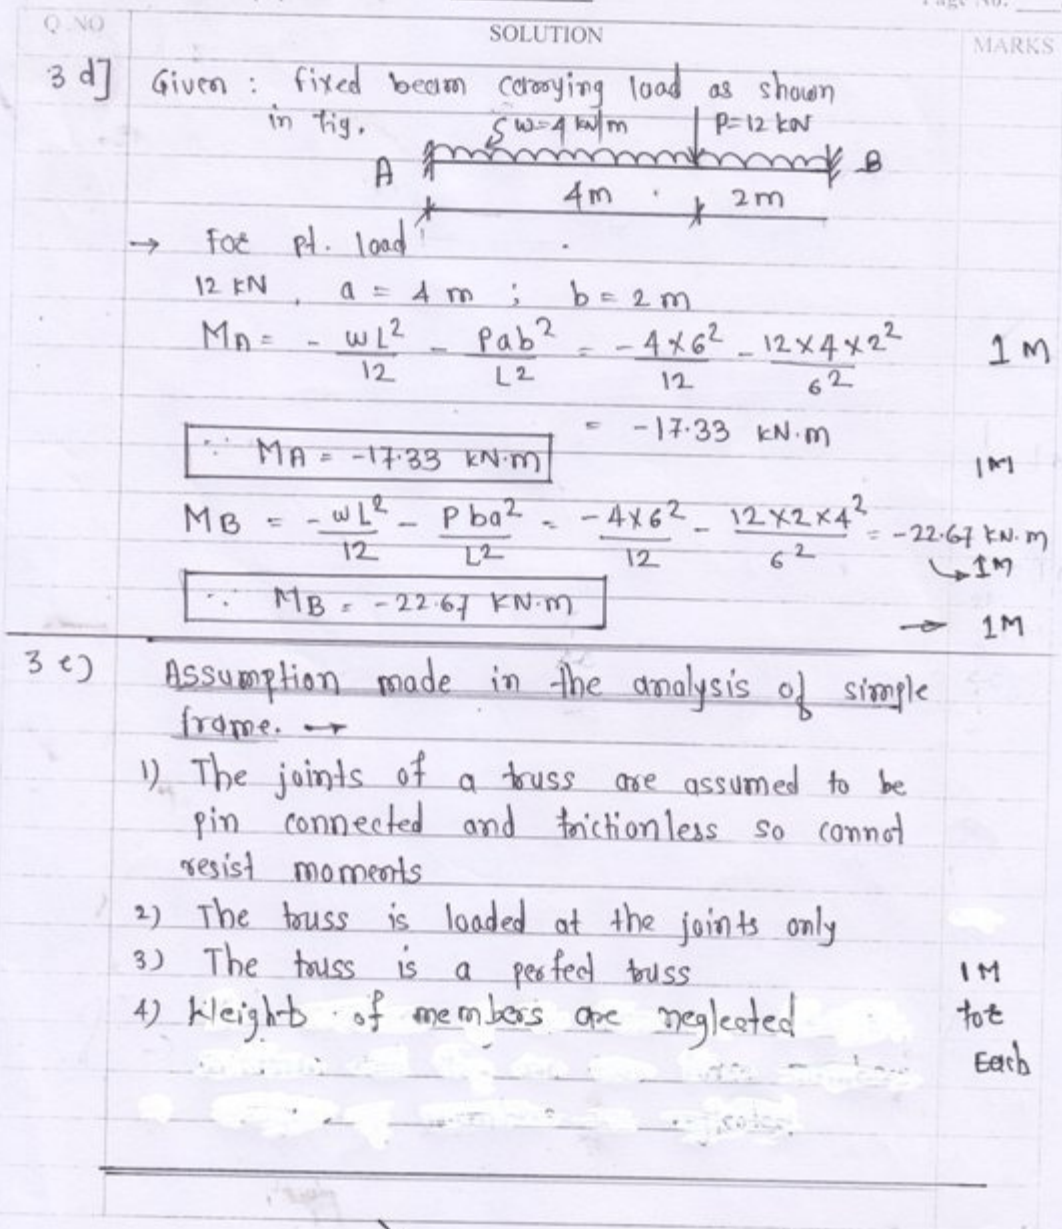 Page No.
Q.NO SOLUTION MARKS
3 d] Given : fixed beam carrying load as shown
in fig.
w=4 kN/m P=12 kN
A B
4m 2m
→ For pt. load
12 kN , a = 4 m ; b = 2 m
MA = - wL²/12 - Pab²/L² = -4×6²/12 - 12×4×2²/6² 1 M
= -17.33 kN.m
∵ MA = -17.33 kN.m 1M
MB = - wL²/12 - Pba²/L² = -4×6²/12 - 12×2×4²/6² = -22.67 kN.m
↳1M
∵ MB = -22.67 KN.m → 1M
3 e) Assumption made in the analysis of simple
frame. →
1) The joints of a truss are assumed to be
pin connected and frictionless so cannot
resist moments
2) The truss is loaded at the joints only
3) The truss is a perfect truss 1M
4) Weight of members are neglected for
Each